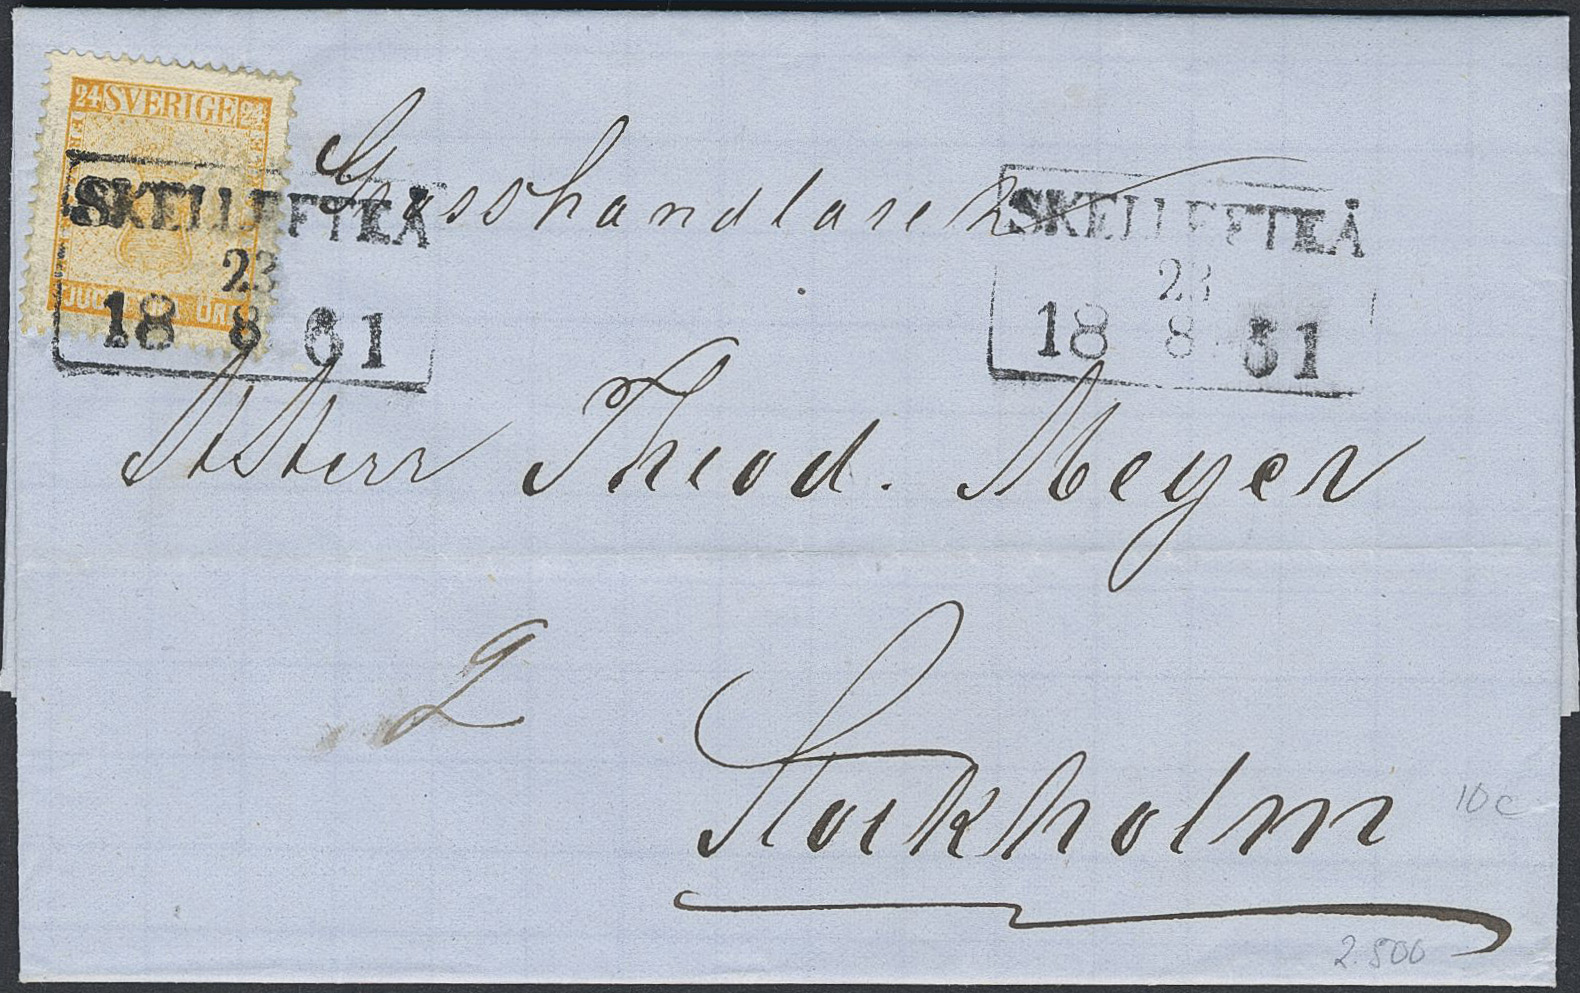 24 SVERIGE 24
SKELLEFTEÅ
23
18 8 61
TJUGUFYRA ÖRE
SKELLEFTEÅ
23
18 8 61
Grosshandlaren
Herr Theod. Meyer
2
Stockholm
10c
2.500